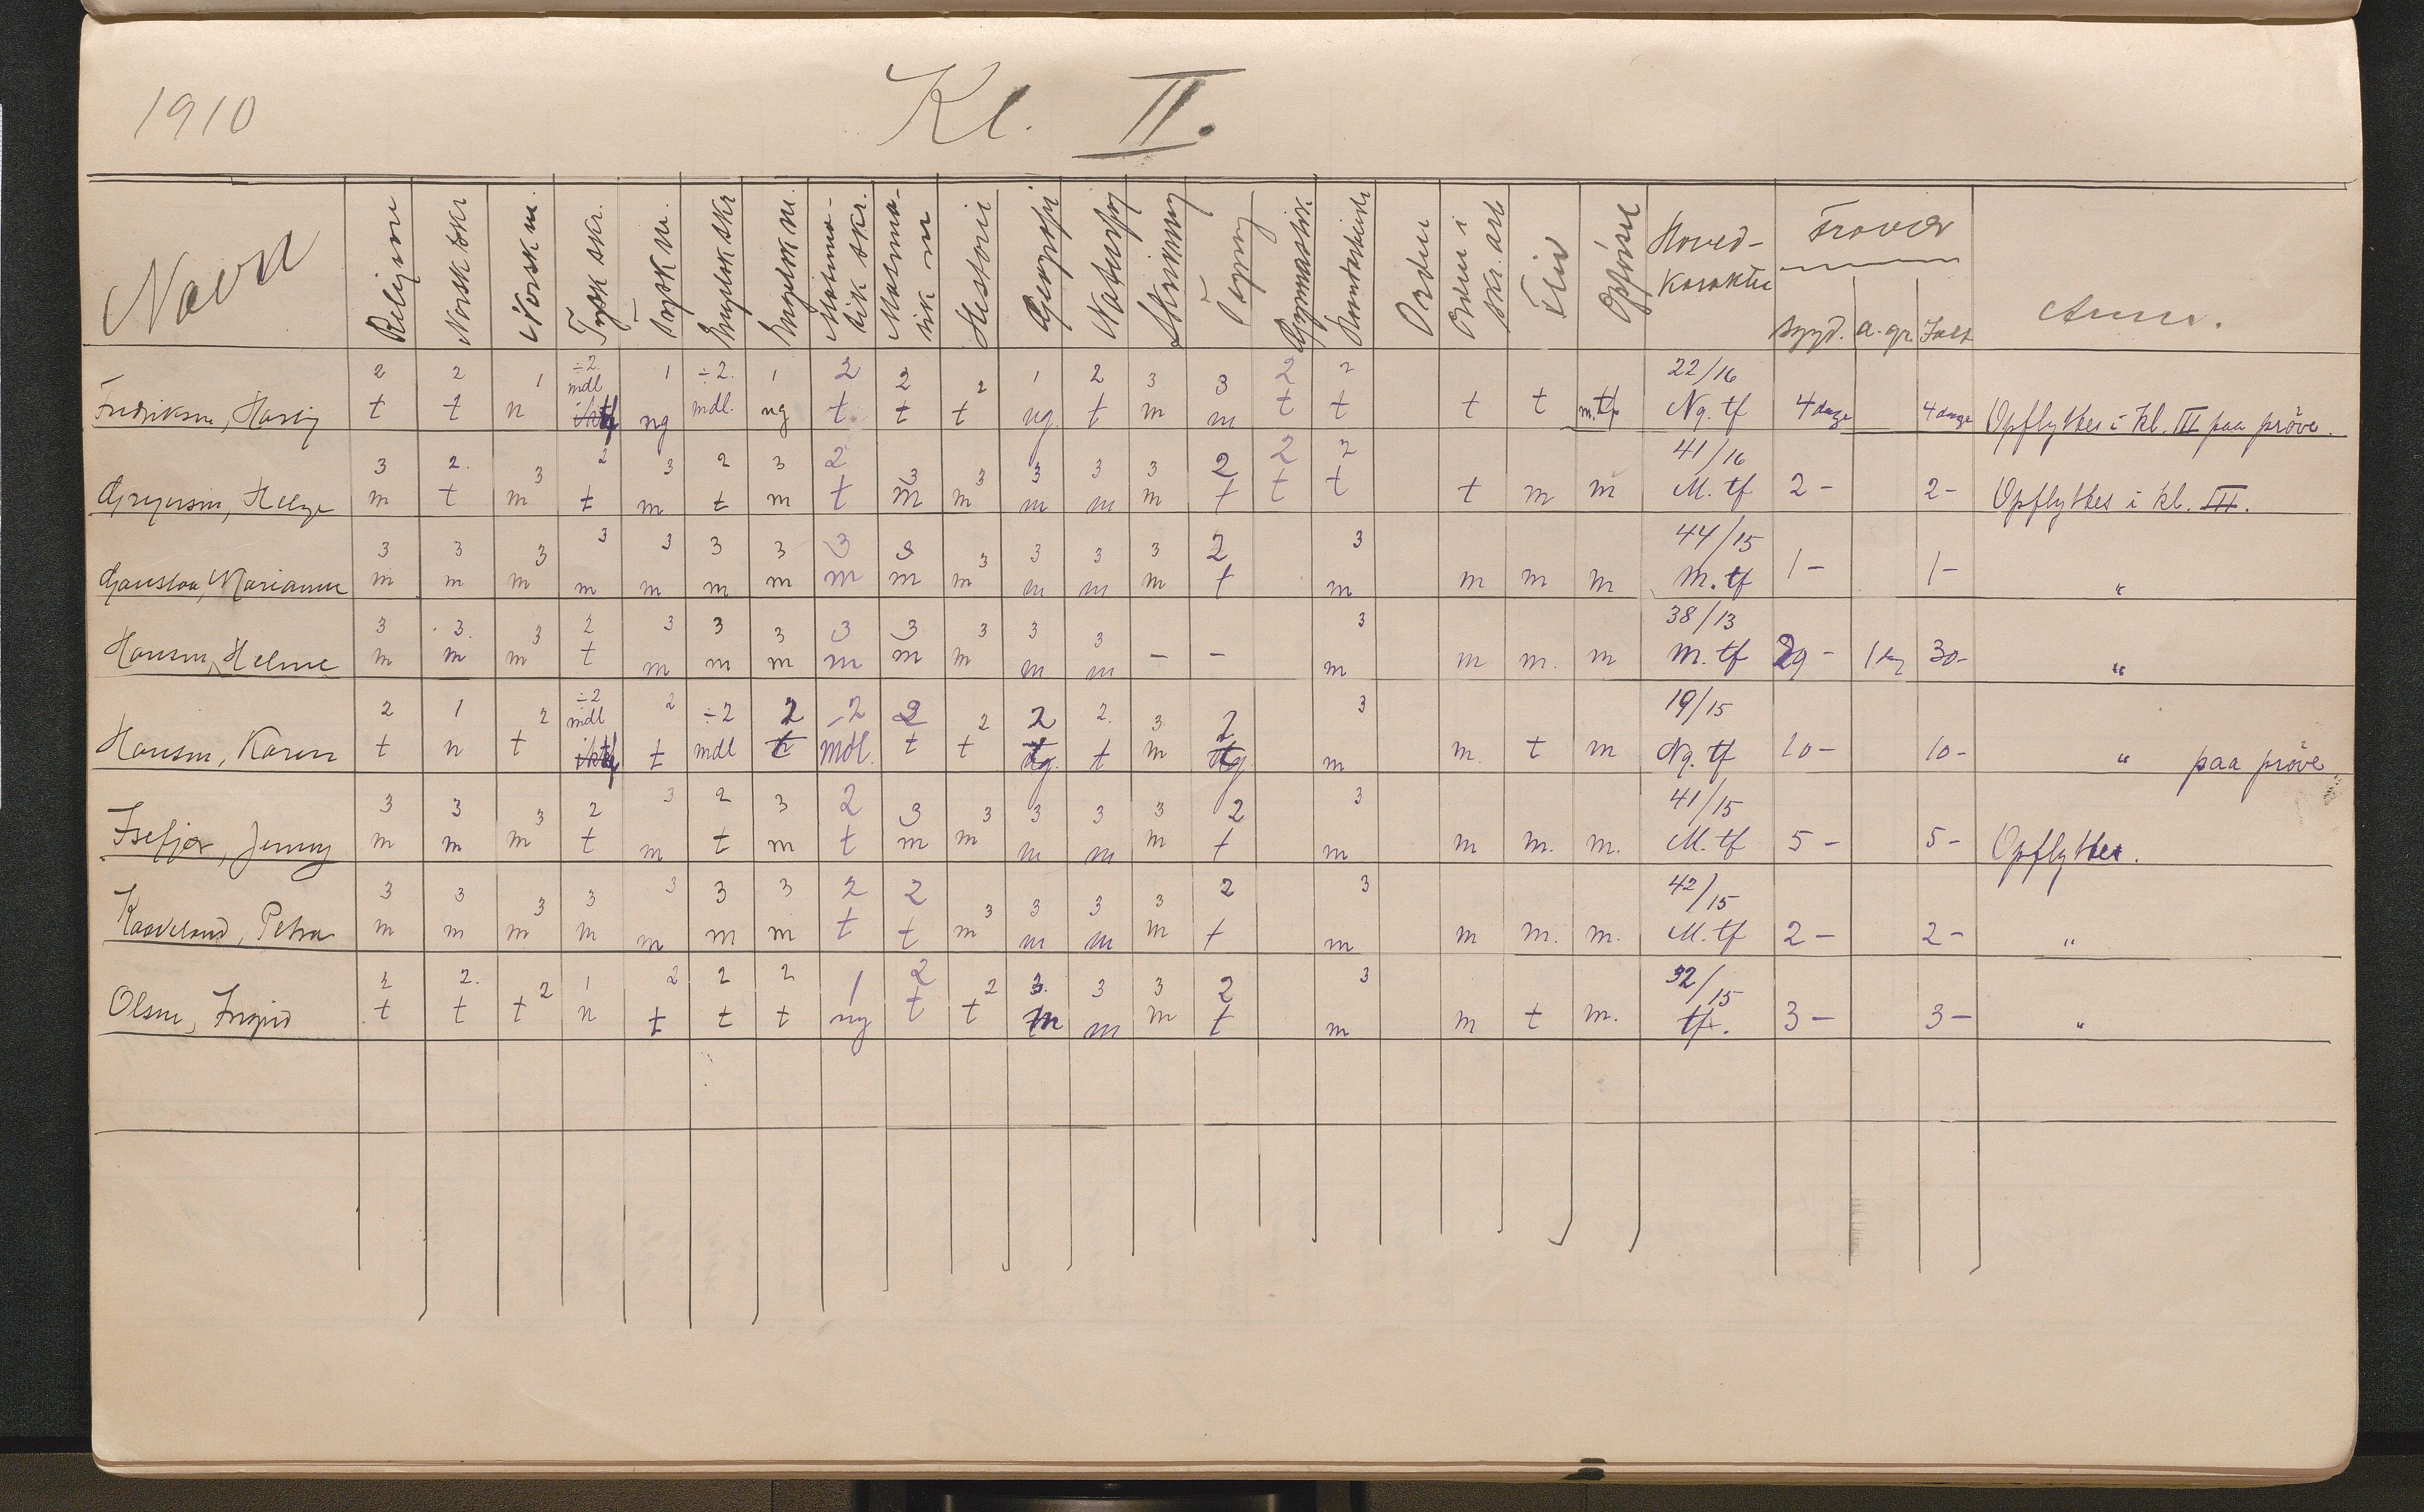 1910 Kl. II.
Navn Religion Norsk skr Norsk m Tysk skr. Tysk m. Engelsk skr Engelsk m. Matema-tik skr. Matema-tik m Historie Geografi Naturfag Skrivning Tegning Gymnastik Haandarbeide Orden Orden i skr. arb Flid Opførsel Hoved-Karakter Fraver Anm.
sygd. a. gr. Ialt
2 2 1 ÷2 1 ÷2. 1 2 2 2 1 2 3 3 2 2 22/16
Fredriksen, t t n mdl ng mdl. ng t t t ng. t m m t t t t m. tf Ng. tf 4 dage 4 dage Opflyttes i kl. III paa prøve.
3 2. 3 2 3 2 3 2 3 3 3 3 3 2 2 2 41/16
Gregersen, Helge m t m t m t m t m m m m m t t t t m m M. tf 2 - 2 - Opflyttes i kl. III.
3 3 3 3 3 3 3 3 3 3 3 3 3 2 3 44/15
Marianne m m m m m m m m m m m m m t m m m m M. tf 1 - 1 - "
3 3. 3 2 3 3 3 3 3 3 3 3 3 38/13
Hansen, Helene m m m t m m m m m m m m - - m m m. m M. tf 29 - 1 dg 30 - "
2 1 2 ÷2 2 ÷2 2 -2 2 2 2 2. 3 2 3 19/15
Hansen, Karen t n t mdl t mdl t mdl. t t tg. t m tg m m. t m Ng. tf 10 - 10 - " paa prøve
3 3 3 2 3 2 3 2 3 3 3 3 3 2 3 41/15
Isefjær, Jenny m m m t m t m t m m m m m t m m m. m. M. tf 5 - 5 - Opflyttes.
3 3 3 3 3 3 3 2 2 3 3 3 3 2 3 42/15
Kaaveland, Petra m m m m m m m t t m m m m t m m m. m. M. tf 2 - 2 - "
2 2. 2 1 2 2 2 1 2 2 3. 3 3 2 3 32/15
Olsen, Ingrid t t t n t t t ng t t m m m t m m t m. tf. 3 - 3 - "